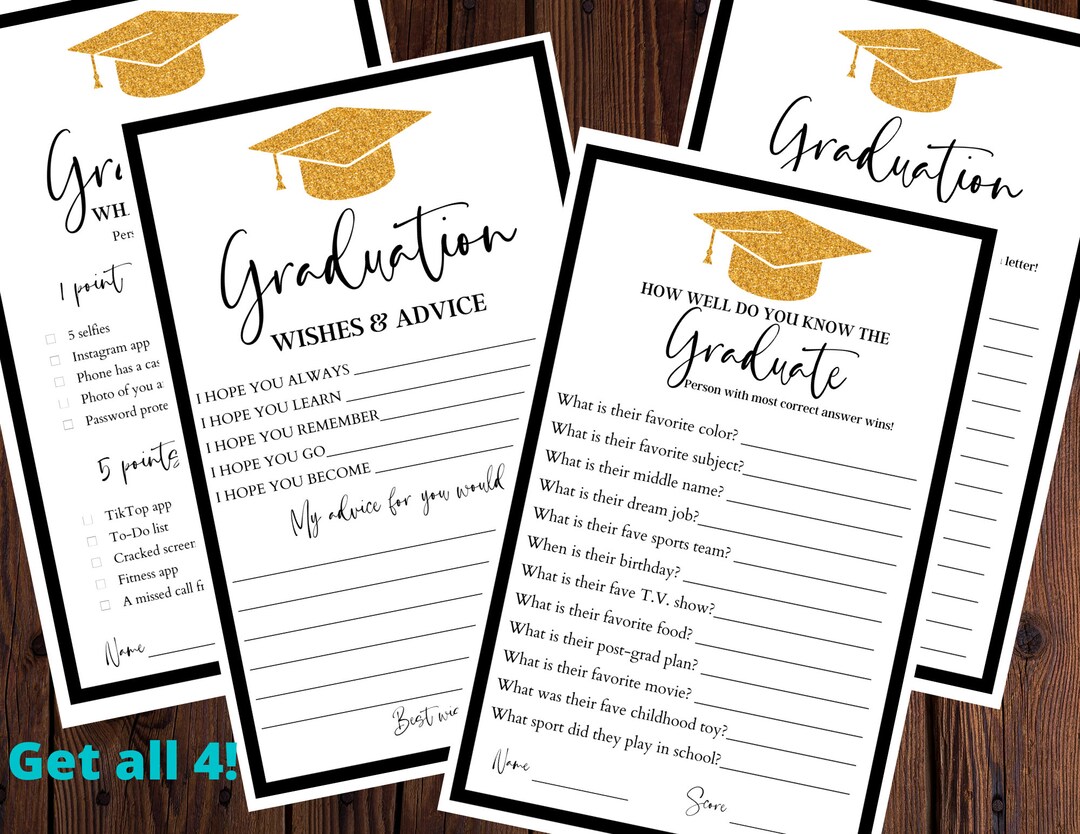 Gra
WH
Pers
1 point
5 selfies
Instagram app
Phone has a cas
Photo of you a
Password prote
5 points
TikTop app
To-Do list
Cracked screen
Fitness app
A missed call fr
Name
Graduation
WISHES & ADVICE
I HOPE YOU ALWAYS
I HOPE YOU LEARN
I HOPE YOU REMEMBER
I HOPE YOU GO
I HOPE YOU BECOME
My advice for you would
Best wis
HOW WELL DO YOU KNOW THE
Graduate
Person with most correct answer wins!
What is their favorite color?
What is their favorite subject?
What is their middle name?
What is their dream job?
What is their fave sports team?
When is their birthday?
What is their fave T.V. show?
What is their favorite food?
What is their post-grad plan?
What is their favorite movie?
What was their fave childhood toy?
What sport did they play in school?
Name
Score
Graduation
letter!
Get all 4!